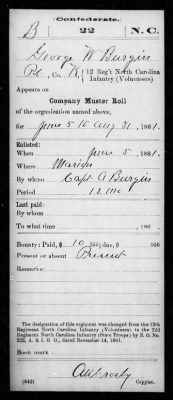 Confederate.
B 22 N.C.
George W Burgin
Pvt, Co. K, 12 Reg't North Carolina Infantry (Volunteers)
Appears on
Company Muster Roll
of the organization named above,
for June 5 to Aug 31, 1861.
Enlisted:
When June 5, 1861.
Where Marion
By whom Capt A Burgin
Period 12 mo
Last paid:
By whom
To what time , 186 .
Bounty: Paid, $ 10 /100; due, $ 100
Present or absent Present
Remarks:
The designation of this regiment was changed from the 12th
Regiment North Carolina Infantry (Volunteers) to the 22d
Regiment North Carolina Infantry (State Troops) by S. O. No.
222, A. & I. G. O., dated November 14, 1861.
Book mark:
(642) Copyist.